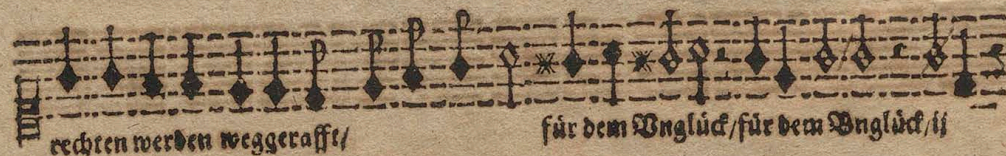 rechten werden weggerafft/ für dem Vnglück/für dem Vnglück/ij